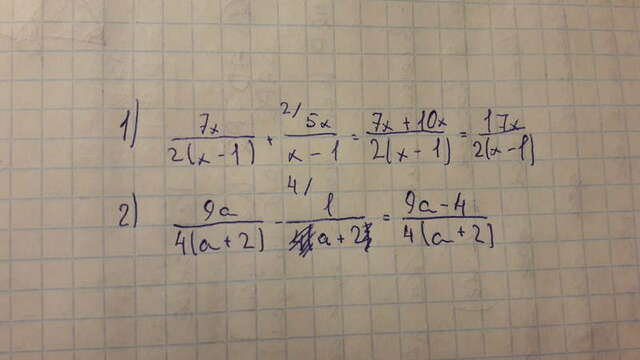 1) 7x/2(x-1) + 2/ 5x/x-1 = 7x+10x/2(x-1) = 17x/2(x-1)
2) 9a/4(a+2) - 4/ 1/a+2 = 9a-4/4(a+2)